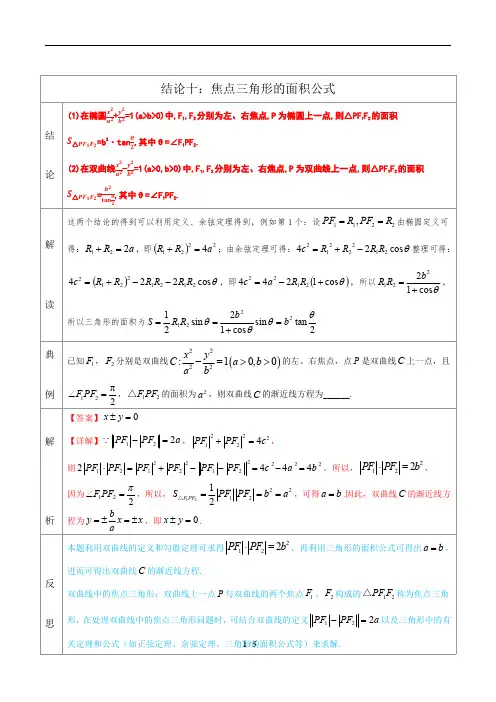 结论十：焦点三角形的面积公式
结论
(1)在椭圆x²/a²+y²/b²=1(a>b>0)中,F₁,F₂分别为左、右焦点,P为椭圆上一点,则△PF₁F₂的面积
S△PF₁F₂=b²·tanθ/2,其中θ=∠F₁PF₂.
(2)在双曲线x²/a²−y²/b²=1(a>0,b>0)中,F₁,F₂分别为左、右焦点,P为双曲线上一点,则△PF₁F₂的面积
S△PF₁F₂=b²/tanθ/2,其中θ=∠F₁PF₂.
解读
这两个结论的得到可以利用定义、余弦定理得到，例如第1个：设PF₁=R₁,PF₂=R₂由椭圆定义可
得：R₁+R₂=2a，即(R₁+R₂)²=4a²；由余弦定理可得：4c²=R₁²+R₂²−2R₁R₂cosθ整理可得：
4c²=(R₁+R₂)²−2R₁R₂−2R₁R₂cosθ，即4c²=4a²−2R₁R₂(1+cosθ)，所以R₁R₂=2b²/(1+cosθ)，
所以三角形的面积为S=1/2R₁R₂sinθ=1/2·2b²/(1+cosθ)sinθ=b²tanθ/2
典例
已知F₁，F₂分别是双曲线C:x²/a²−y²/b²=1(a>0,b>0)的左、右焦点，点P是双曲线C上一点，且
∠F₁PF₂=π/2，△F₁PF₂的面积为a²，则双曲线C的渐近线方程为______.
解析
【答案】x±y=0
【详解】∵|PF₁−PF₂|=2a，|PF₁|²+|PF₂|²=4c²，
则2|PF₁|·|PF₂|=|PF₁|²+|PF₂|²−|PF₁−PF₂|²=4c²−4a²=4b²，所以，|PF₁|·|PF₂|=2b²，
因为∠F₁PF₂=π/2，所以，S△F₁PF₂=1/2|PF₁||PF₂|=b²=a²，可得a=b.因此，双曲线C的渐近线方
程为y=±b/a x=±x，即x±y=0.
反思
本题利用双曲线的定义和勾股定理可求得|PF₁|·|PF₂|=2b²，再利用三角形的面积公式可得出a=b，
进而可得出双曲线C的渐近线方程.
双曲线中的焦点三角形：双曲线上一点P与双曲线的两个焦点F₁、F₂构成的△PF₁F₂称为焦点三角
形，在处理双曲线中的焦点三角形问题时，可结合双曲线的定义|PF₁|−|PF₂|=2a以及三角形中的有
关定理和公式（如正弦定理、余弦定理、三角形的面积公式等）来求解.
1 / 5